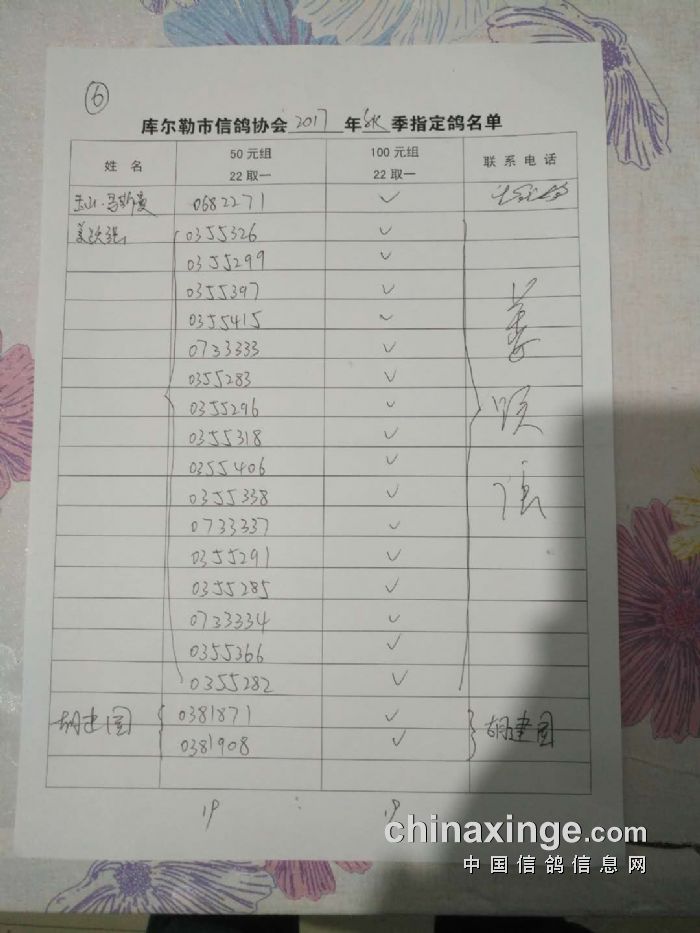 ⑥
库尔勒市信鸽协会 2017 年 秋 季指定鸽名单
姓 名 50元组 22取一 100元组 22取一 联系电话
0682271 ✓
0355326 ✓
0355299 ✓
0355397 ✓
0355415 ✓
0733333 ✓
0355283 ✓
0355296 ✓
0355318 ✓
0355406 ✓
0355338 ✓
0733337 ✓
0355291 ✓
0355285 ✓
0733334 ✓
0355366 ✓
0355282 ✓
胡建国 0381871 ✓ 胡建国
0381908 ✓
19 : 19
chinaxinge.com
中国信鸽信息网